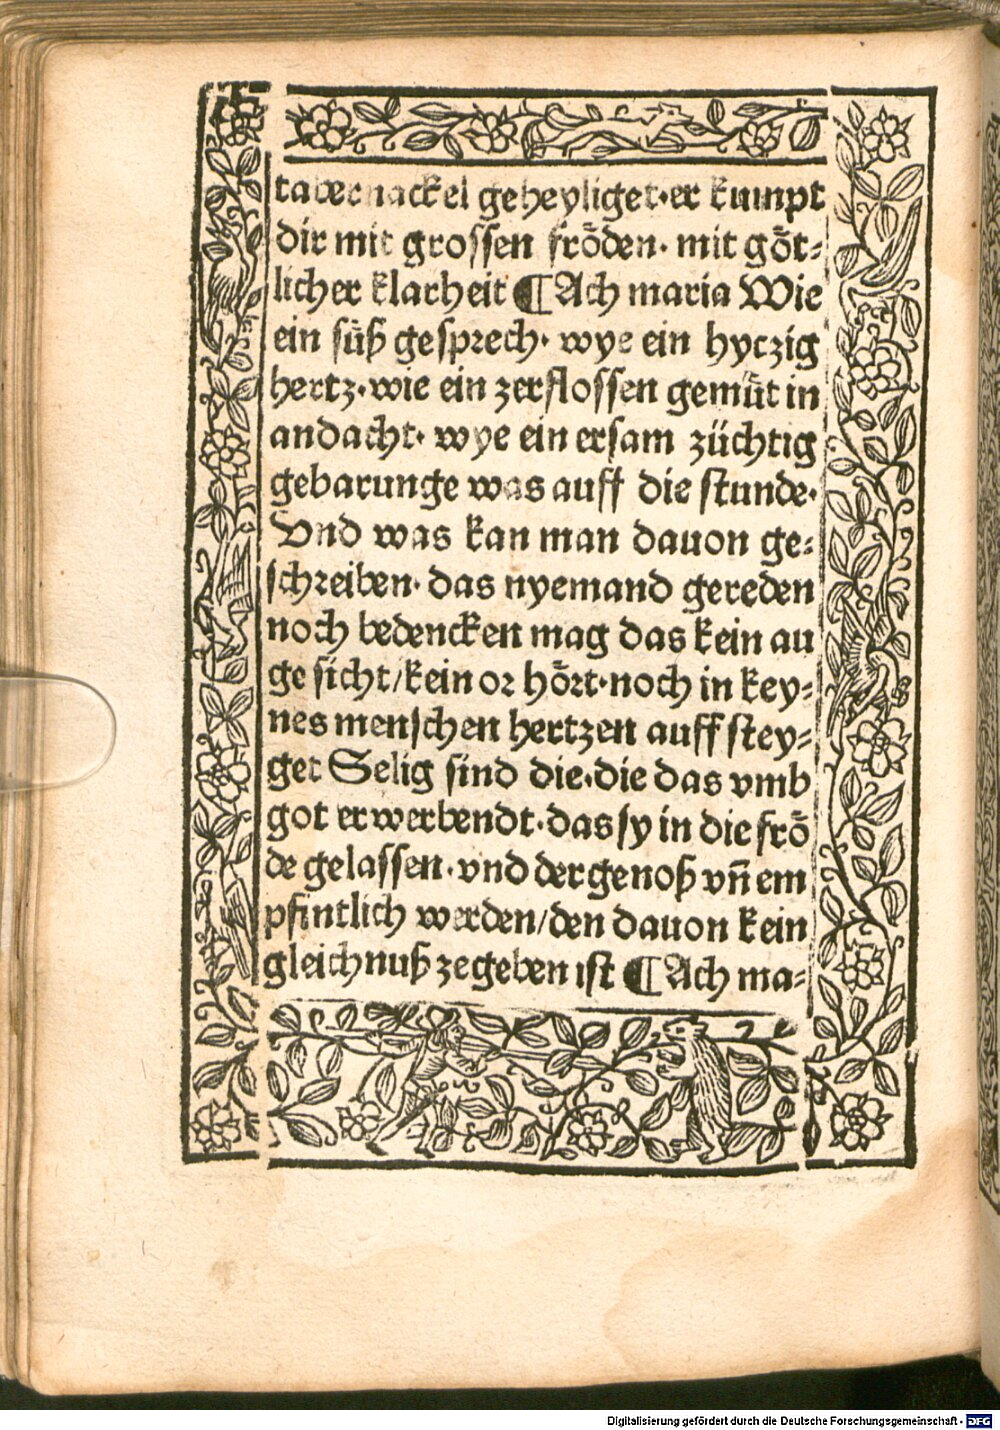 tabernackel geheyliget·er kumpt
dir mit grossen frőden· mit gőt⸗
licher klarheit ¶Ach maria Wie
ein süß gesprech· wye ein hyczig
hertz·wie ein zerflossen gemüt in
andacht· wye ein ersam züchtig
gebarunge was auff die stunde·
Vnd was kan man dauon ge⸗
schreiben· das nyemand gereden
noch bedencken mag das kein au
ge sicht/kein or hőrt·noch in key⸗
nes menschen hertzen auff stey⸗
get Selig sind die·die das vmb
got erwerbendt·das sy in die frő
de gelassen·vnd der genoß vñ em
pfintlich werden/den dauon kein
gleichnuß zegeben ist ¶Ach ma⸗
Digitalisierung gefördert durch die Deutsche Forschungsgemeinschaft - DFG